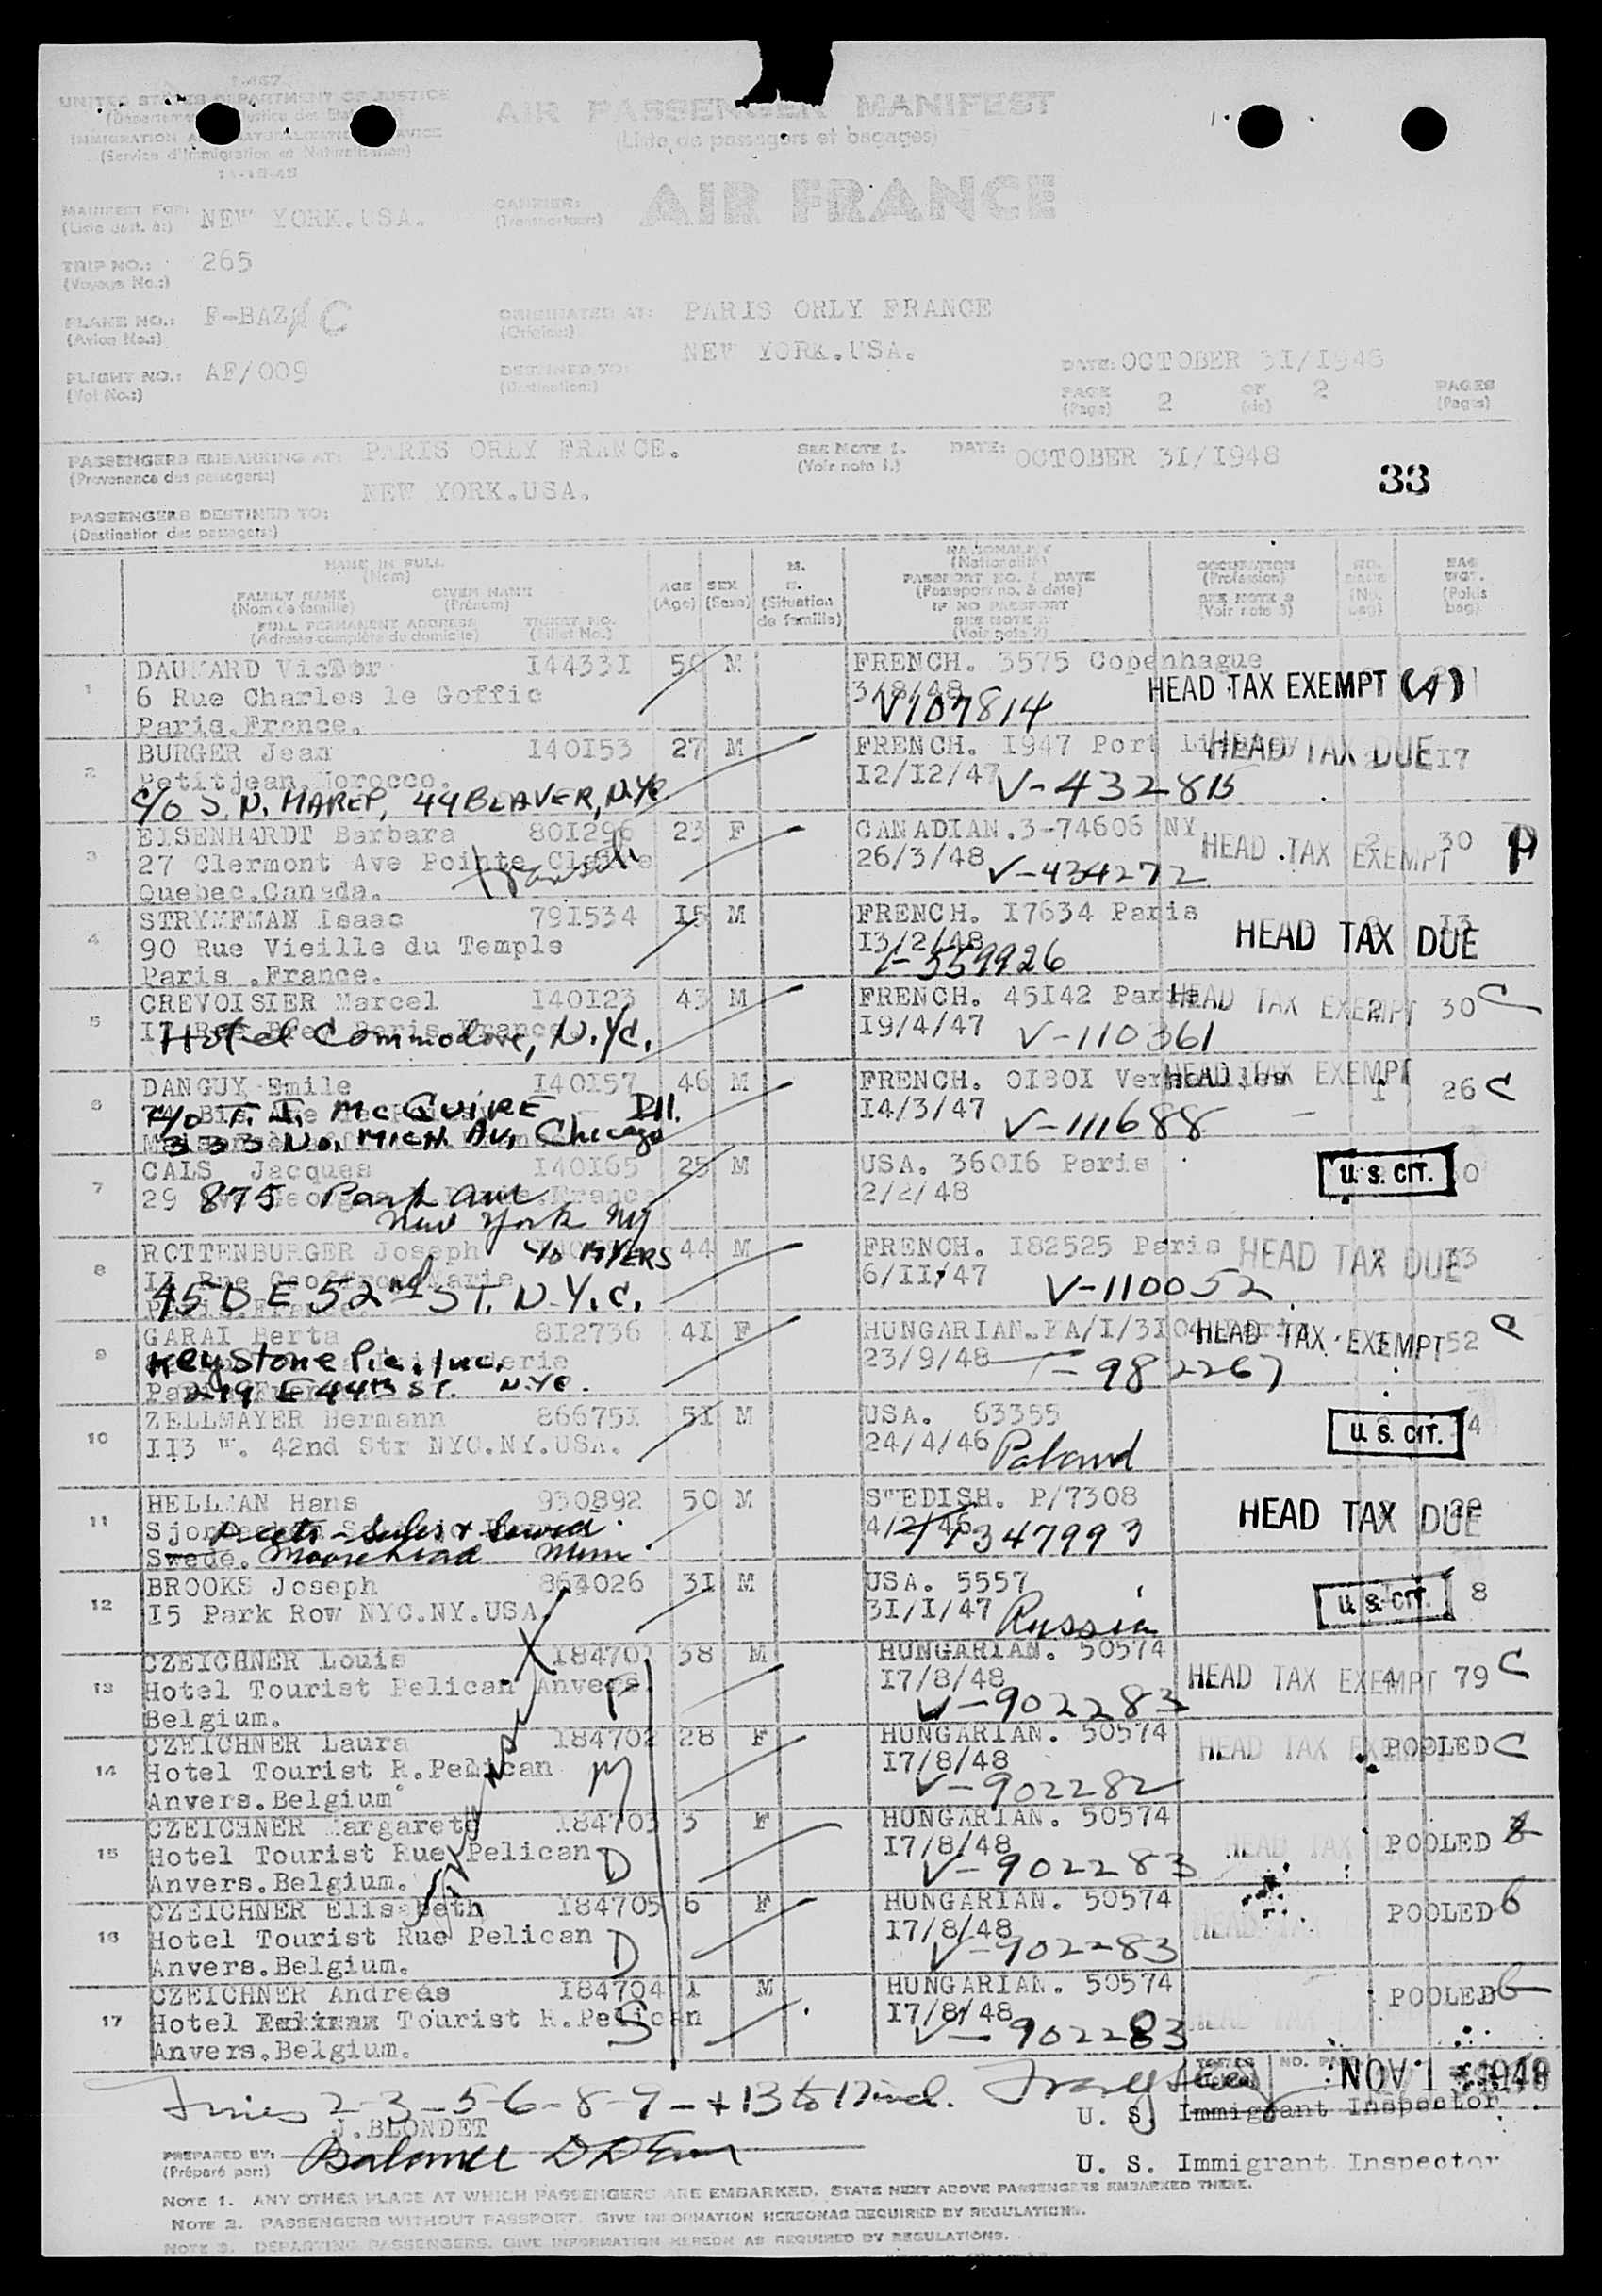 I-467
UNITED STATES DEPARTMENT OF JUSTICE
IMMIGRATION AND NATURALIZATION SERVICE
(Service d'Immigration et Naturalisation)
11-15-45
AIR PASSENGER MANIFEST
(Liste de passagers et bagages)
MANIFEST FOR: NEW YORK.USA.
(Liste dest. à:)
CARRIER: AIR FRANCE
(Transporteur:)
TRIP NO.: 265
(Voyage No.:)
PLANE NO.: F-BAZ C
(Avion No.:)
ORIGINATED AT: PARIS ORLY FRANCE
(Origine:)
FLIGHT NO.: AF/009
(Vol No.:)
DESTINED TO: NEW YORK.USA.
(Destination:)
DATE: OCTOBER 3I/I948
PAGE 2 OF 2 PAGES
(Page) (de) (Pages)
PASSENGERS EMBARKING AT: PARIS ORLY FRANCE.
(Provenance des passagers:)
SEE NOTE 1.
(Voir note 1.)
DATE: OCTOBER 3I/I948
33
NEW YORK.USA.
PASSENGERS DESTINED TO:
(Destination des passagers:)
NAME IN FULL
(Nom)
FAMILY NAME GIVEN NAME
(Nom de famille) (Prénom)
FULL PERMANENT ADDRESS TICKET NO.
(Adresse complète du domicile) (Billet No.)
AGE SEX
(Age) (Sexe)
M.
S.
(Situation
de famille)
NATIONALITY
(Nationalité)
PASSPORT NO. & DATE
(Passeport no. & date)
IF NO PASSPORT
SEE NOTE 2
(Voir note 2)
OCCUPATION
(Profession)
SEE NOTE 3
(Voir note 3)
NO. BAGS
(No. bag)
BAG WGT.
(Poids bag)
1 DAUMARD Victor I4433I 50 M FRENCH. 3575 Copenhague
6 Rue Charles le Goffic 3/8/48 HEAD TAX EXEMPT (A)
Paris.France. V107814
2 BURGER Jean I40I53 27 M FRENCH. I947 Port HEAD TAX DUE I7
Petitjean.Morocco. I2/I2/47 V-432815
c/o S. N. MAREP, 44 BEAVER, N.Y.C.
3 EISENHARDT Barbara 80I296 23 F CANADIAN.3-74606 NY 2 30
27 Clermont Ave Pointe Claire 26/3/48 HEAD TAX EXEMPT P
Quebec.Canada. V-434272
4 STRYMFMAN Isaac 79I534 I5 M FRENCH. I7634 Paris I3
90 Rue Vieille du Temple I3/2/48 HEAD TAX DUE
Paris .France. 559926
5 CREVOISIER Marcel I40I23 43 M FRENCH. 45I42 Paris HEAD TAX EXEMPT 2 30 C
Hotel Commodore, N.Y.C. I9/4/47 V-110361
6 DANGUY Emile I40I57 46 M FRENCH. 0I80I Versailles HEAD TAX EXEMPT 1 26 C
c/o F. I. McGUIRE Ill. I4/3/47 V-111688
333 No. MICH. AV, Chicago
7 CALS Jacques I40I65 25 M USA. 360I6 Paris U. S. CIT. 0
29 875 Park ave 2/2/48
New York NY
8 ROTTENBURGER Joseph c/o MYERS 44 M FRENCH. I82525 Paris HEAD TAX DUE
6/II/47 V-110052
450 E 52nd ST. N.Y.C.
9 GARAI Berta 8I2736 4I F HUNGARIAN. HEAD TAX EXEMPT 52 C
Keystone Pic. Inc. 23/9/48 982267
219 E 44th ST. N.Y.C.
10 ZELLMAYER Hermann 86675I 5I M USA. 63355 U. S. CIT. 4
II3 W. 42nd Str NYC.NY.USA. 24/4/46 Poland
11 HELLMAN Hans 930892 50 M SWEDISH. P/7308 HEAD TAX DUE
347993
Swede. Moorehead Minn
12 BROOKS Joseph 864026 3I M USA. 5557 U. S. CIT. 8
I5 Park Row NYC.NY.USA. 3I/I/47 Russia
13 CZEICHNER Louis I8470I 38 M HUNGARIAN. 50574
Hotel Tourist Pelican Anvers. F I7/8/48 HEAD TAX EXEMPT 4 79 C
Belgium. V-902283
14 CZEICHNER Laura I84702 28 F HUNGARIAN. 50574
Hotel Tourist R.Pelican M I7/8/48 HEAD TAX EXEMPT POOLED C
Anvers.Belgium V-902282
15 CZEICHNER Margarete I84703 3 F HUNGARIAN. 50574
Hotel Tourist Rue Pelican D I7/8/48 HEAD TAX POOLED
Anvers.Belgium. V-902283
16 CZEICHNER Elisabeth I84705 6 F HUNGARIAN. 50574
Hotel Tourist Rue Pelican D I7/8/48 HEAD TAX POOLED 6
Anvers.Belgium. V-902283
17 CZEICHNER Andreas I84704 1 M HUNGARIAN. 50574 POOLED 6
Hotel Tourist R.Pelican S I7/8/48 HEAD TAX
Anvers.Belgium. V-902283
Fines 2-3-5-6-8-9-+13 to 17 incl. NOV 1 1948
U. S. Immigrant Inspector
J.BLONDET
PREPARED BY:
(Préparé par:)
Balance
U. S. Immigrant Inspector
NOTE 1. ANY OTHER PLACE AT WHICH PASSENGERS ARE EMBARKED. STATE NEXT ABOVE PASSENGERS EMBARKED THERE.
NOTE 2. PASSENGERS WITHOUT PASSPORT. GIVE INFORMATION HEREON AS REQUIRED BY REGULATIONS.
NOTE 3. DEPARTING PASSENGERS. GIVE INFORMATION HEREON AS REQUIRED BY REGULATIONS.